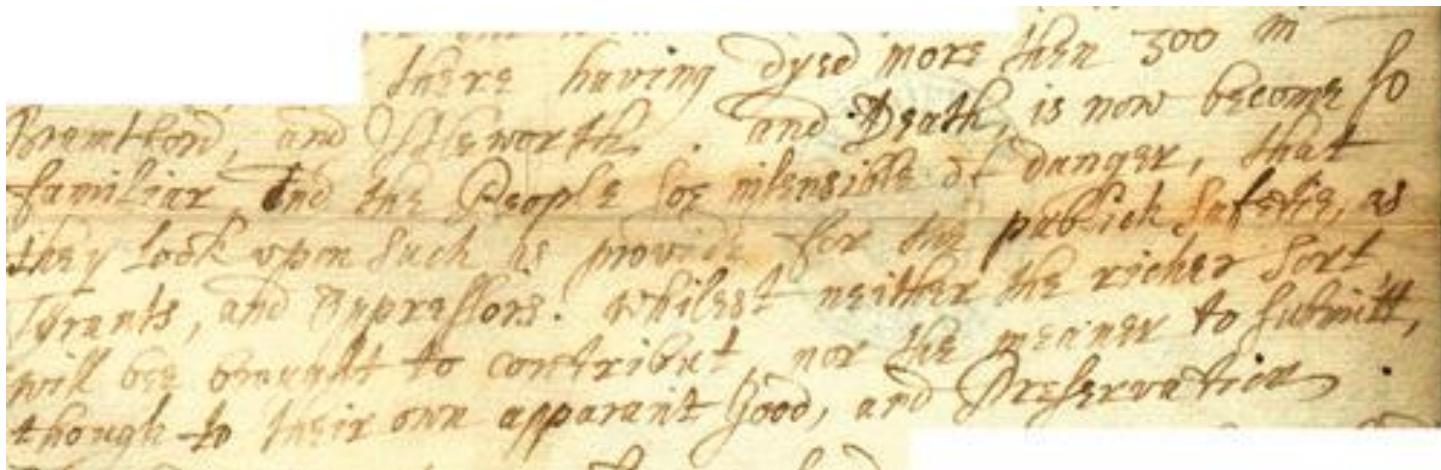 there having dyed more then 300 in
Bramtford, and Istleworth. and Death, is now become so
familiar and the People soe insensible of danger, that
they look upon such as provide for the publick safetie, as
Tyrants, and Oppressors. Whilest neither the richer sort
will bee brought to contribut, nor the meaner to submitt,
though to their own apparant Good, and Preservation.